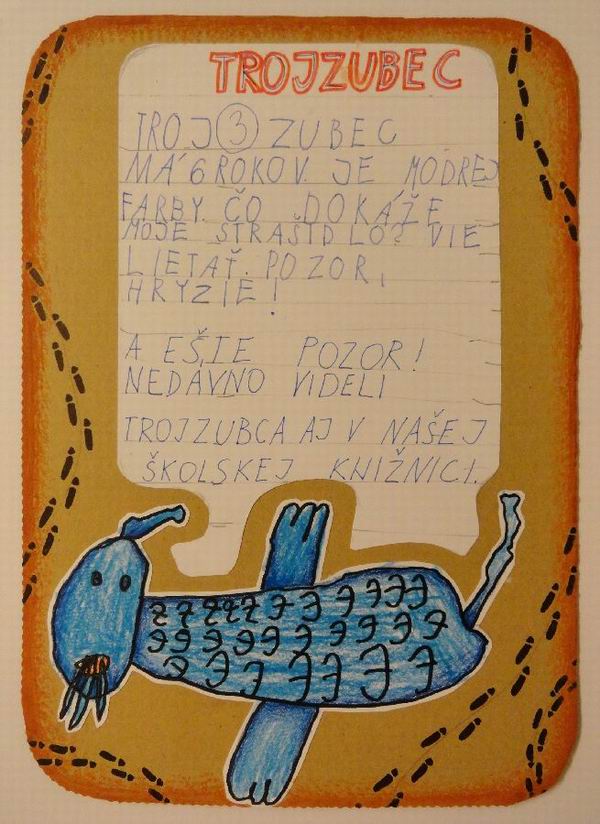 TROJZUBEC
TROJ3ZUBEC
MÁ 6 ROKOV. JE MODREJ
FARBY. ČO DOKÁŽE
MOJE STRAŠIDLO? VIE
LIETAŤ. POZOR,
HRYZIE!
A EŠTE POZOR!
NEDÁVNO VIDELI
TROJZUBCA AJ V NAŠEJ
ŠKOLSKEJ KNIŽNICI.